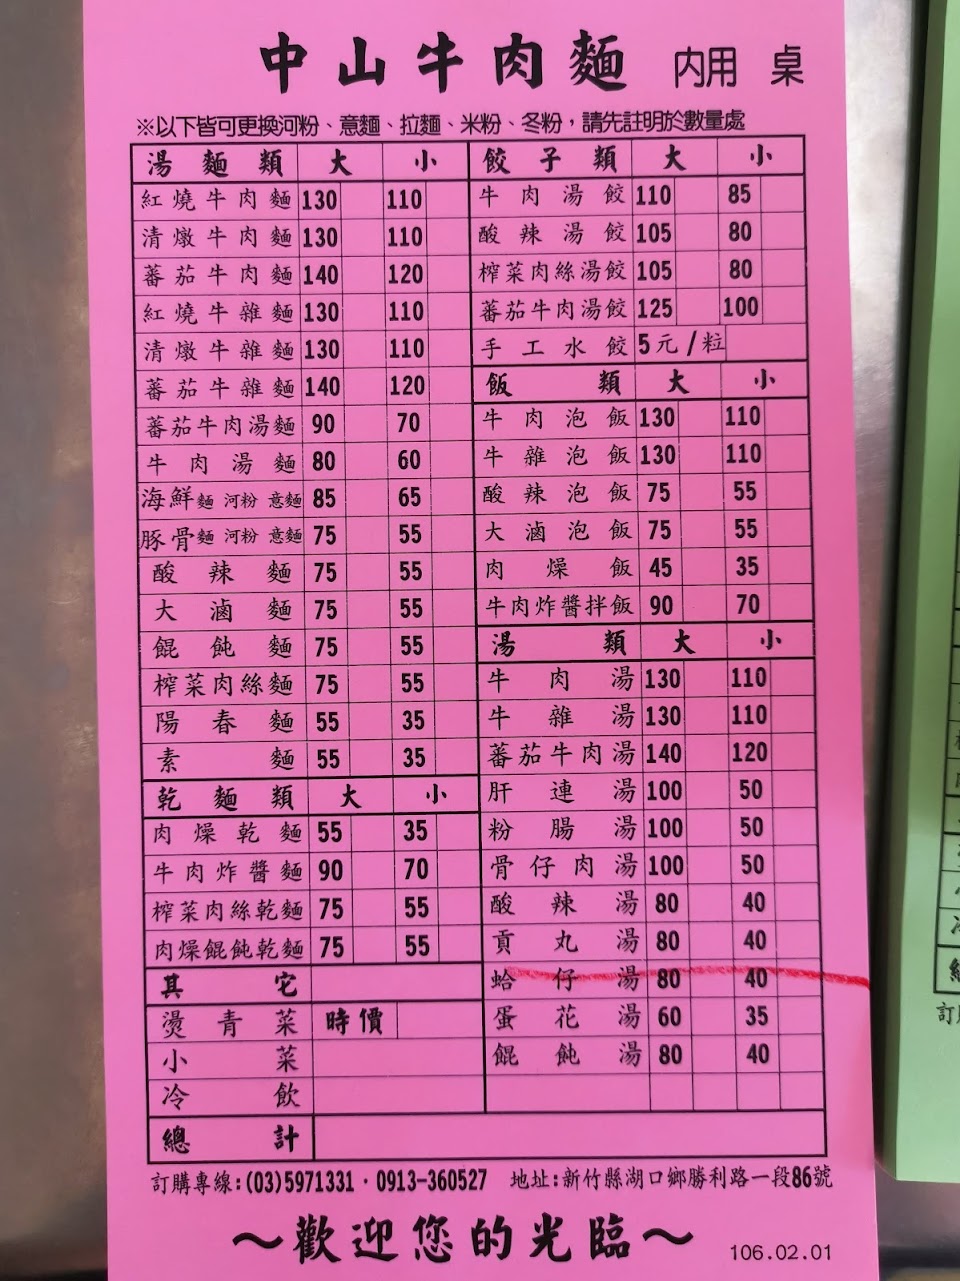 中山牛肉麵 內用 桌
※以下皆可更換河粉、意麵、拉麵、米粉、冬粉，請先註明於數量處
湯麵類 大 小
紅燒牛肉麵 130 110
清燉牛肉麵 130 110
蕃茄牛肉麵 140 120
紅燒牛雜麵 130 110
清燉牛雜麵 130 110
蕃茄牛雜麵 140 120
蕃茄牛肉湯麵 90 70
牛肉湯麵 80 60
海鮮麵 河粉 意麵 85 65
豚骨麵 河粉 意麵 75 55
酸辣麵 75 55
大滷麵 75 55
餛飩麵 75 55
榨菜肉絲麵 75 55
陽春麵 55 35
素麵 55 35
乾麵類 大 小
肉燥乾麵 55 35
牛肉炸醬麵 90 70
榨菜肉絲乾麵 75 55
肉燥餛飩乾麵 75 55
其它
燙青菜 時價
小菜
冷飲
餃子類 大 小
牛肉湯餃 110 85
酸辣湯餃 105 80
榨菜肉絲湯餃 105 80
蕃茄牛肉湯餃 125 100
手工水餃 5元/粒
飯類 大 小
牛肉泡飯 130 110
牛雜泡飯 130 110
酸辣泡飯 75 55
大滷泡飯 75 55
肉燥飯 45 35
牛肉炸醬拌飯 90 70
湯類 大 小
牛肉湯 130 110
牛雜湯 130 110
蕃茄牛肉湯 140 120
肝連湯 100 50
粉腸湯 100 50
骨仔肉湯 100 50
酸辣湯 80 40
貢丸湯 80 40
蛤仔湯 80 40
蛋花湯 60 35
餛飩湯 80 40
總計
訂購專線:(03)5971331·0913-360527 地址:新竹縣湖口鄉勝利路一段86號
～歡迎您的光臨～ 106.02.01